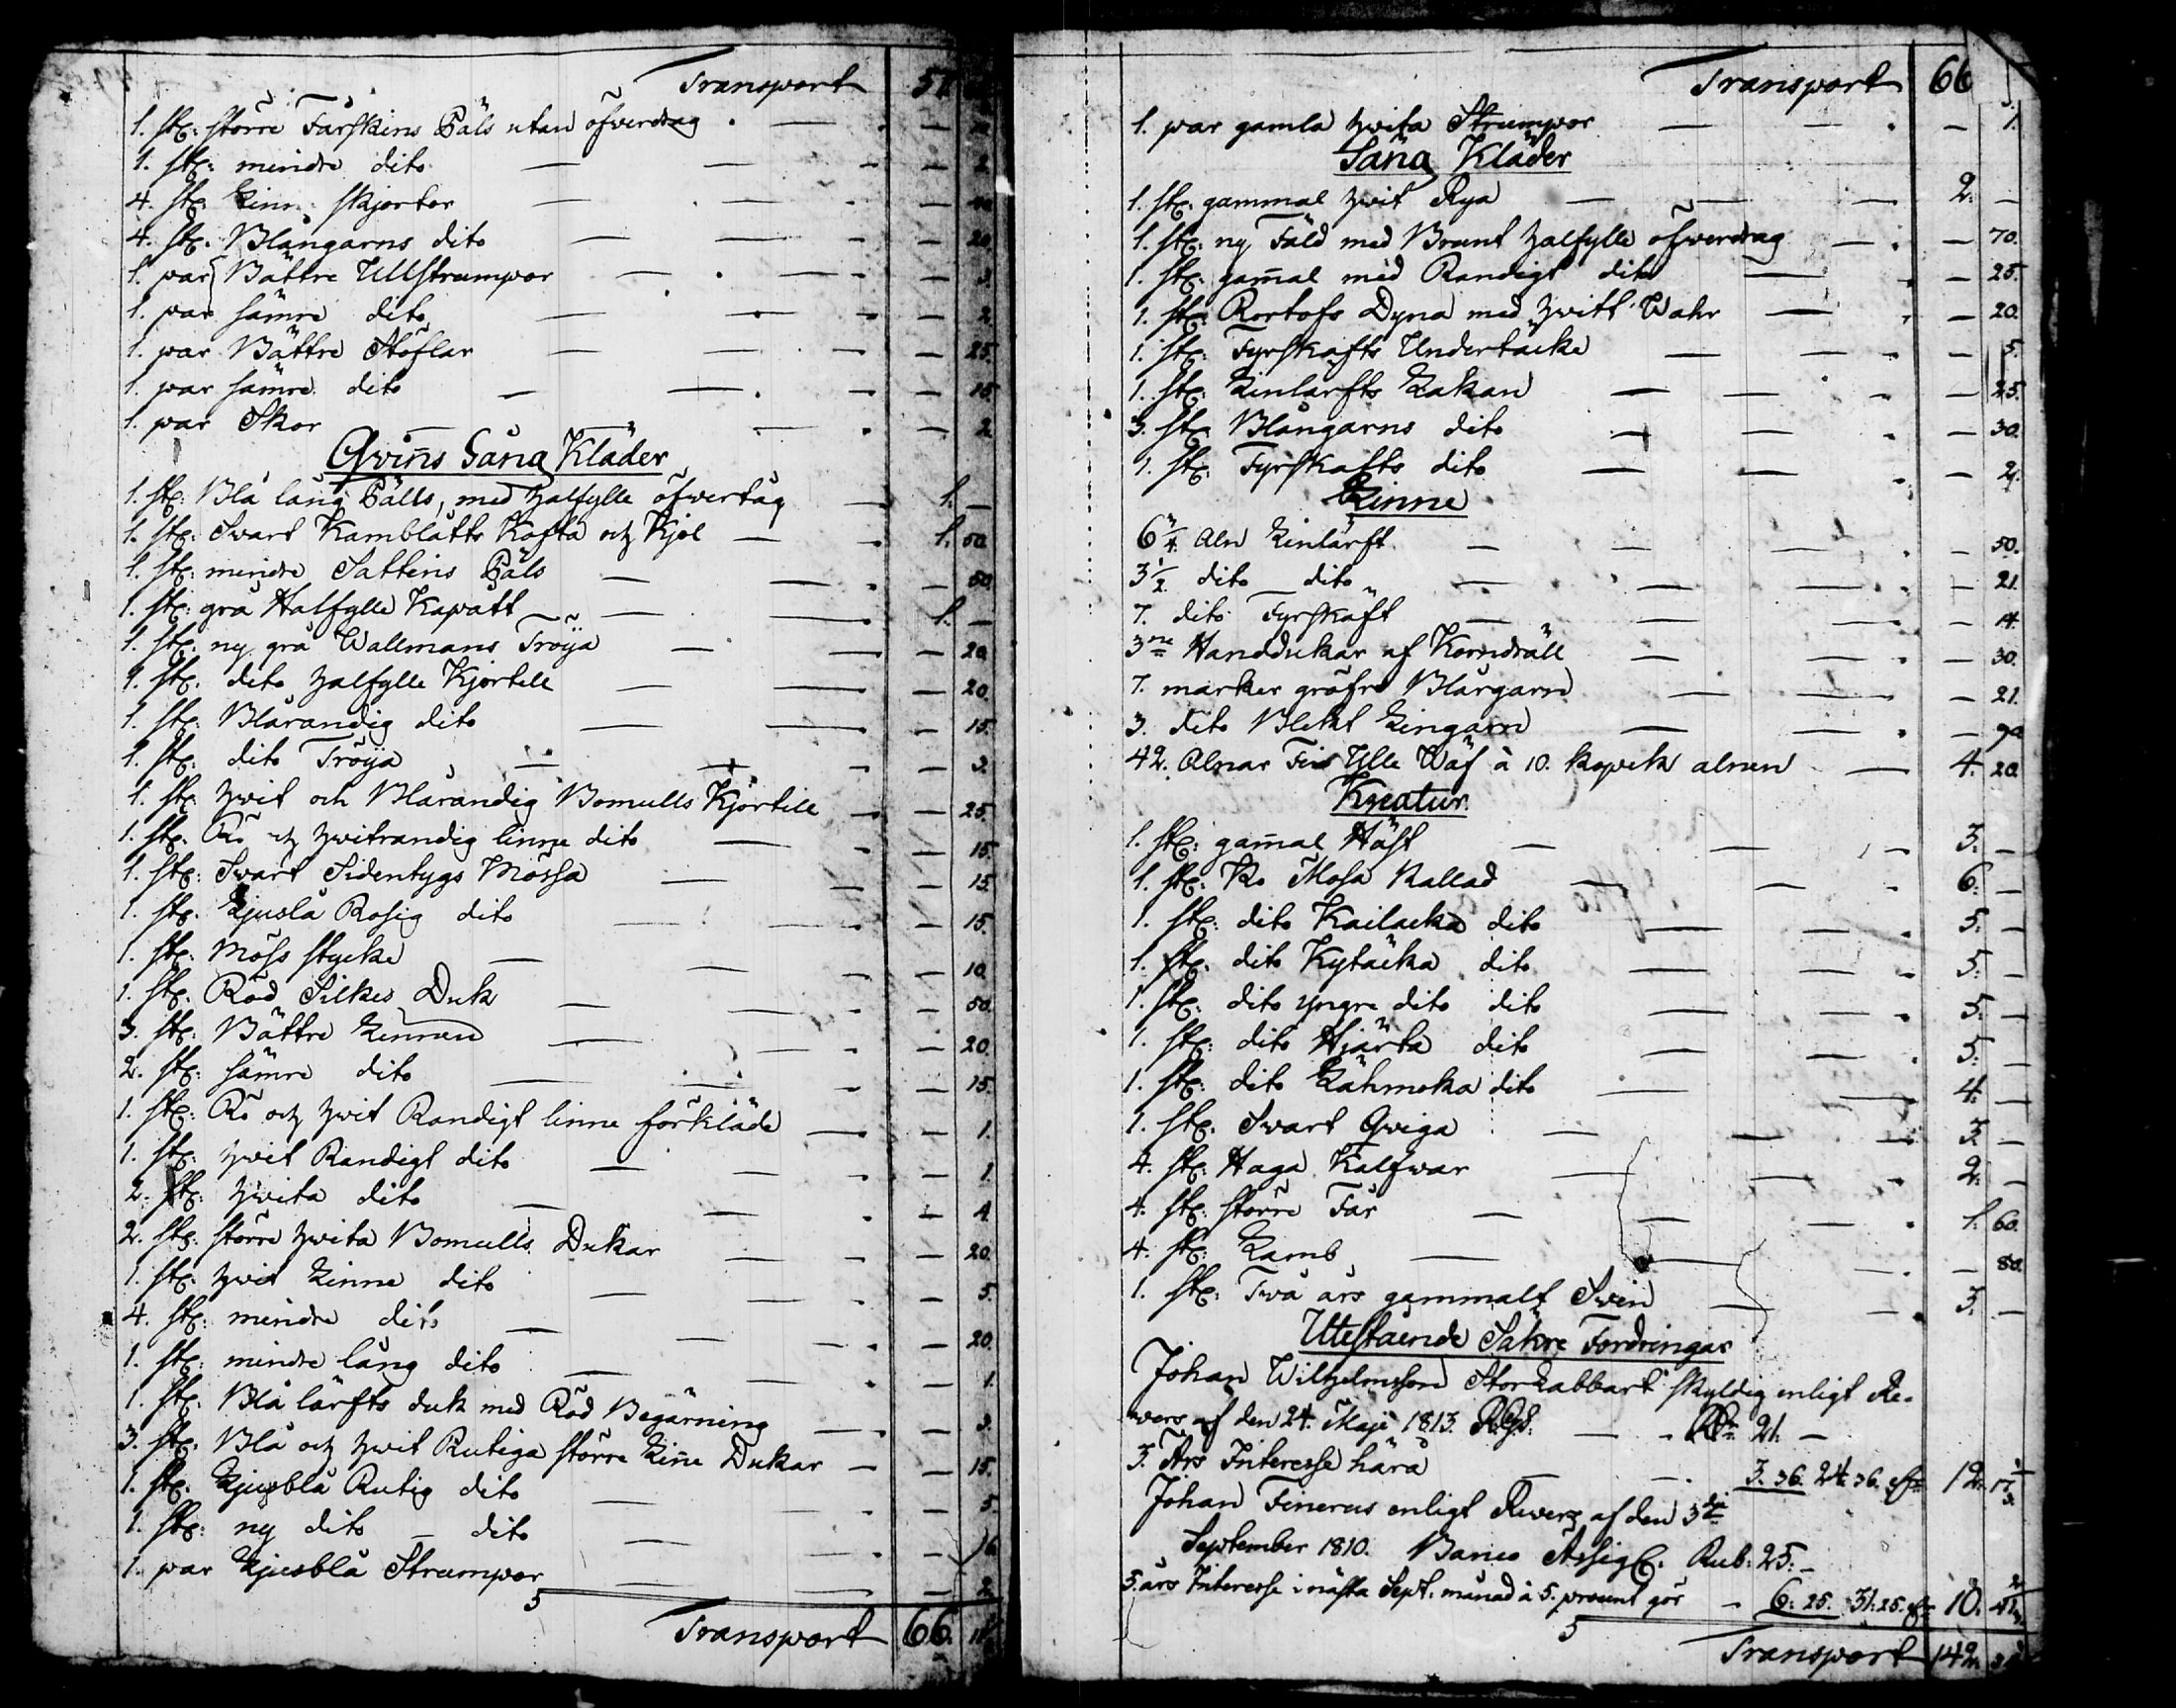 Transport 57
1. st: större Fårskins Päls utan öfverdrag — —
1. st: mindre dito — — — 2.
4. st: Linn: skjortor — — —
4. st: Blångarns dito — — — 20.
1. par Bättre Ullstrumpor — — — 3.
1. par sämre dito — — — 2.
1. par Bättre Stöflar — — — 25.
1. par sämre dito — — — 15.
1. par Skor — — — 2.
Qvins Gång Kläder
1. st: Blå lång Pälls, med halfylle öfwertåg — 1. —
1. st: Swart Kamblåtts Kofta och Kjol — 1. 50.
1. st: mindre Sattins Päls — — — 50.
1. st: grå Halfylle Kapott — — 1. —
1. st: ny grå Wallmans Tröija — — — 20.
1. st: dito halfylle Kjortell — — — 20.
1. st: Blårandig dito — — — 15.
1. st: dito Tröija — — — 3.
1. st: hwit och Blårandig Bomulls Kjortell — — 25.
1. st: Rö och hwitrandig linne dito — — — 15.
1. st: Swart Sidentygs Mössa — — — 15.
1. st: Ljuslå Rosig dito — — — 15.
1. st: Möss stycke — — — 10.
1. st: Röd Silkes Duk — — — 50.
3. st: Bättre Linnen — — — 20.
2. st: sämre dito — — — 15.
1. st: Rö och hwit Randigt linne förkläde — — 1.
1. st: hwit Randigt dito — — — 1.
2. st: hwita dito — — — 4.
2. st: större hwita Bomulls Dukar — — — 20.
1. st: hwit Linne dito — — — 5.
4. st: mindre dito — — — 20.
1. st: mindre lång dito — — — 1.
1. st: Blå lärfts duk med Röd Begärning — — 3.
3. st: Blå och hwit Rutiga större Linne Dukar — — 15.
1. st: Ljusblå Rutig dito — — — 5.
1. st: ny dito — dito — — —
1. par Ljusblå Strumpor — — — 2.
Transport 66.
Transport 66
1. par gamla hwita Strumpor — — — 1.
Säng Kläder
1. st: gammal hwit Rya — — — 2. —
1. st: ny Fäld med Brunt halfylle öfwerdrag — — 70.
1. st: gamal med Randigt dito — — 25.
1. st: Dyna med hwitt Wahr — — 20.
1. st: Fyrskafts Undertäcke — — — 5.
1. st: Linlärfts Lakan — — — 25.
3. st: Blångarns dito — — — 30.
1. st: Fyrskafts dito — — —
Linne
6 3/4. Aln Linlärft — — — 50.
3 1/2. dito dito — — — 21.
7. dito Fyrskäft — — — 14.
3ne Handdukar af Korndräll — — — 30.
7. marker gröfre Blårgarn — — — 21.
3. dito Blekt Lingarn — — —
42. Alnar Fin Ylle Wäf à 10. kopek alnen — 4. 20.
Kreatur
1. st: gamal Häst — — — 3. —
1. st: Ko Mosa Kallad — — — 6. —
1. st: dito Kailacka dito — — 5. —
1. st: dito Kytäcka dito — — 5. —
1. st: dito yngre dito dito — — 5. —
1. st: dito Hjärta dito — — 5. —
1. st: dito Lähmoka dito — — 4. —
1. st: Swart Qwiga — — — 3. —
4. st: Haga Kalfwar — — 2. —
4. st: större Får — — — 1. 60.
4. st: Lamb — — — 80.
1. st: Twå års gammalt Swin — — 3. —
Utestående Säkre Fordringar
Johan Wilhelmsson Storlabbart skyldig enligt Re-
wers af den 24. Maji 1813. — — 21. —
3. Års Interesse härå — — 3. 36. 24. 36. 12.
Johan Finerus enligt Rewers af den 3die
September 1810. Banco Assig: Rub: 25. —
5. års Interesse i nästa Sept. månad à 5. procent gör — 6. 25. 31. 25. 10.
Transport 142.